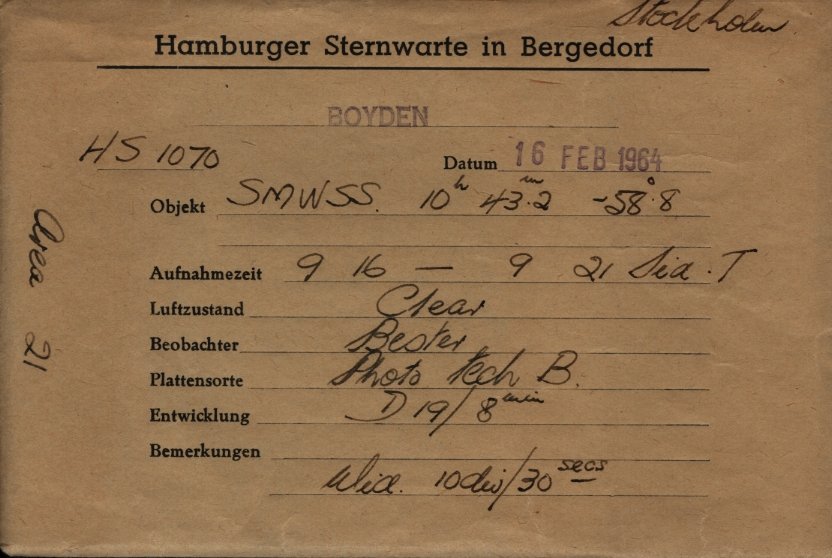 Stockholm
Hamburger Sternwarte in Bergedorf
BOYDEN
HS 1070
Datum 16 FEB 1964
Objekt SMWSS. 10h 43m.2 -58°.8
Aufnahmezeit 9 16 — 9 21 Sid. T
Luftzustand Clear
Beobachter Bester
Plattensorte Photo tech B.
Entwicklung D 19/8 min
Bemerkungen
Wid. 10div/30 secs
Area 21